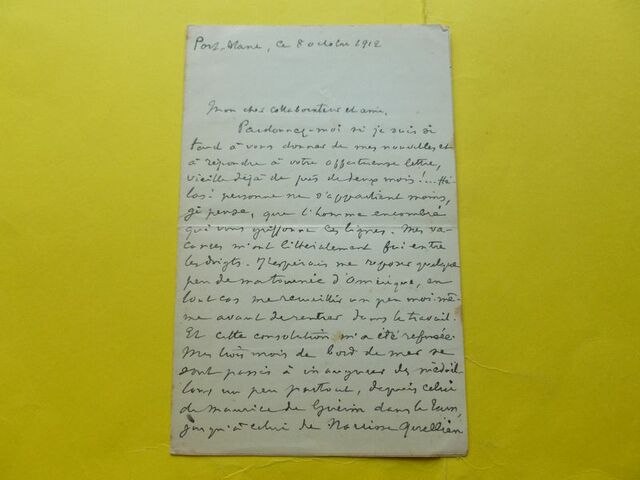 Port-Blanc, ce 8 octobre 1912
Mon cher collaborateur et ami,
Pardonnez-moi si je suis si
tard à vous donner de mes nouvelles et
à répondre à votre affectueuse lettre,
vieille déjà de près de deux mois!... Hé-
las! personne ne s'appartient moins,
je pense, que l'homme encombré
qui vous griffonne ces lignes. Mes va-
cances m'ont littéralement fui entre
les doigts. J'espérais me reposer quelque
peu de ma tournée d'Amérique, en
tout cas me recueillir un peu moi-mê-
me avant de rentrer dans le travail.
Et cette consolation m'a été refusée.
Mes trois mois de bord de mer se
sont passés à inaugurer des médail-
lons un peu partout, depuis celui
de Maurice de Guérin dans le Tarn,
jusqu'à celui de Narcisse Quellien